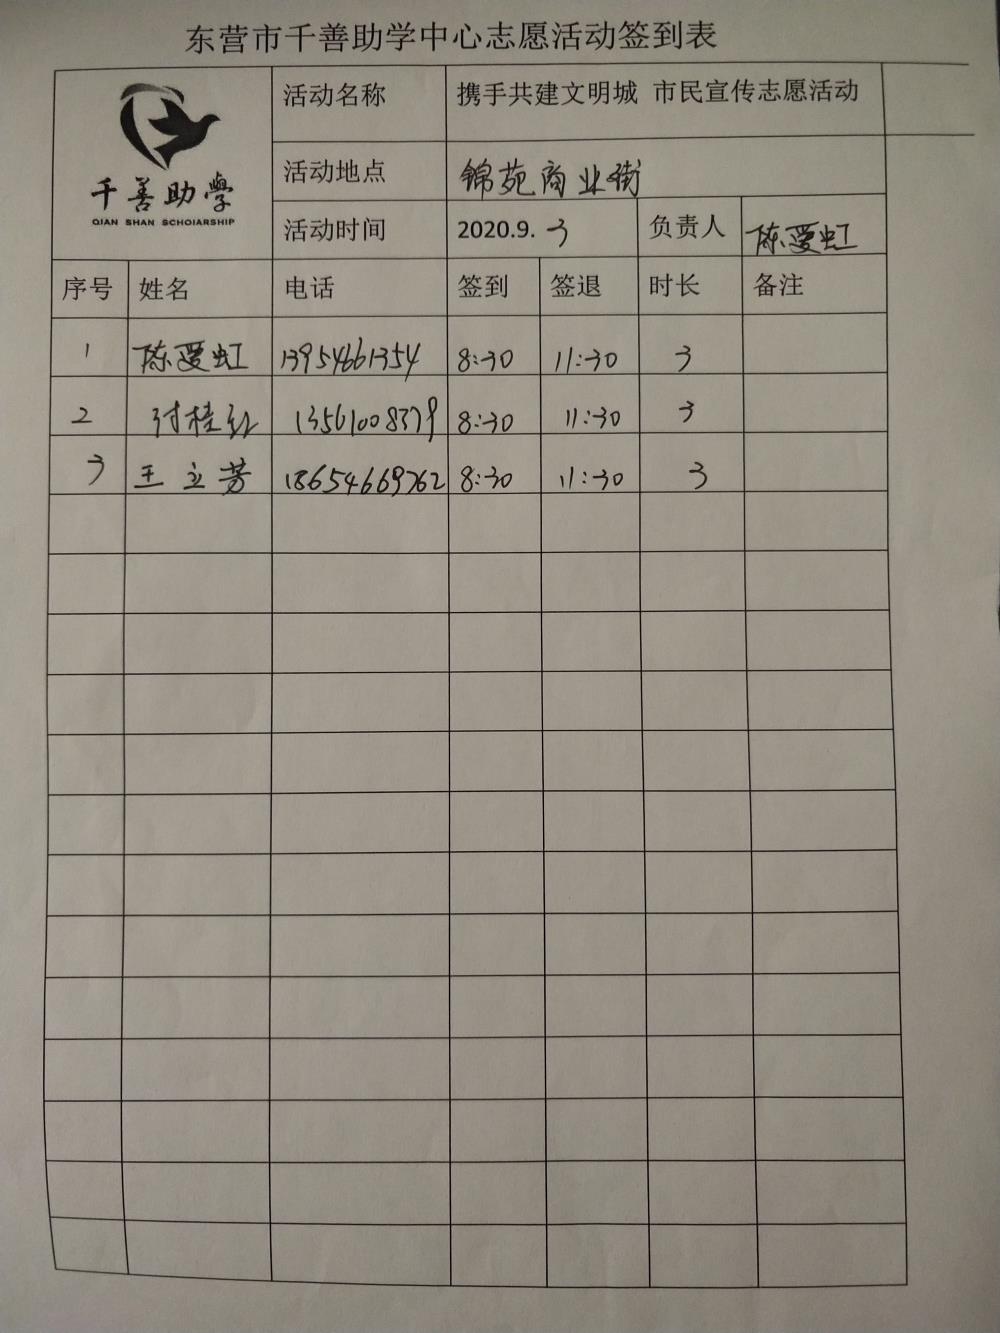 东营市千善助学中心志愿活动签到表
千善助學
QIAN SHAN SCHOIARSHIP
活动名称 携手共建文明城 市民宣传志愿活动
活动地点 锦苑商业街
活动时间 2020.9.3 负责人 陈爱虹
序号 姓名 电话 签到 签退 时长 备注
1 陈爱虹 13954661354 8:30 11:30 3
2 付桂红 13561008379 8:30 11:30 3
3 王立芳 18654669762 8:30 11:30 3